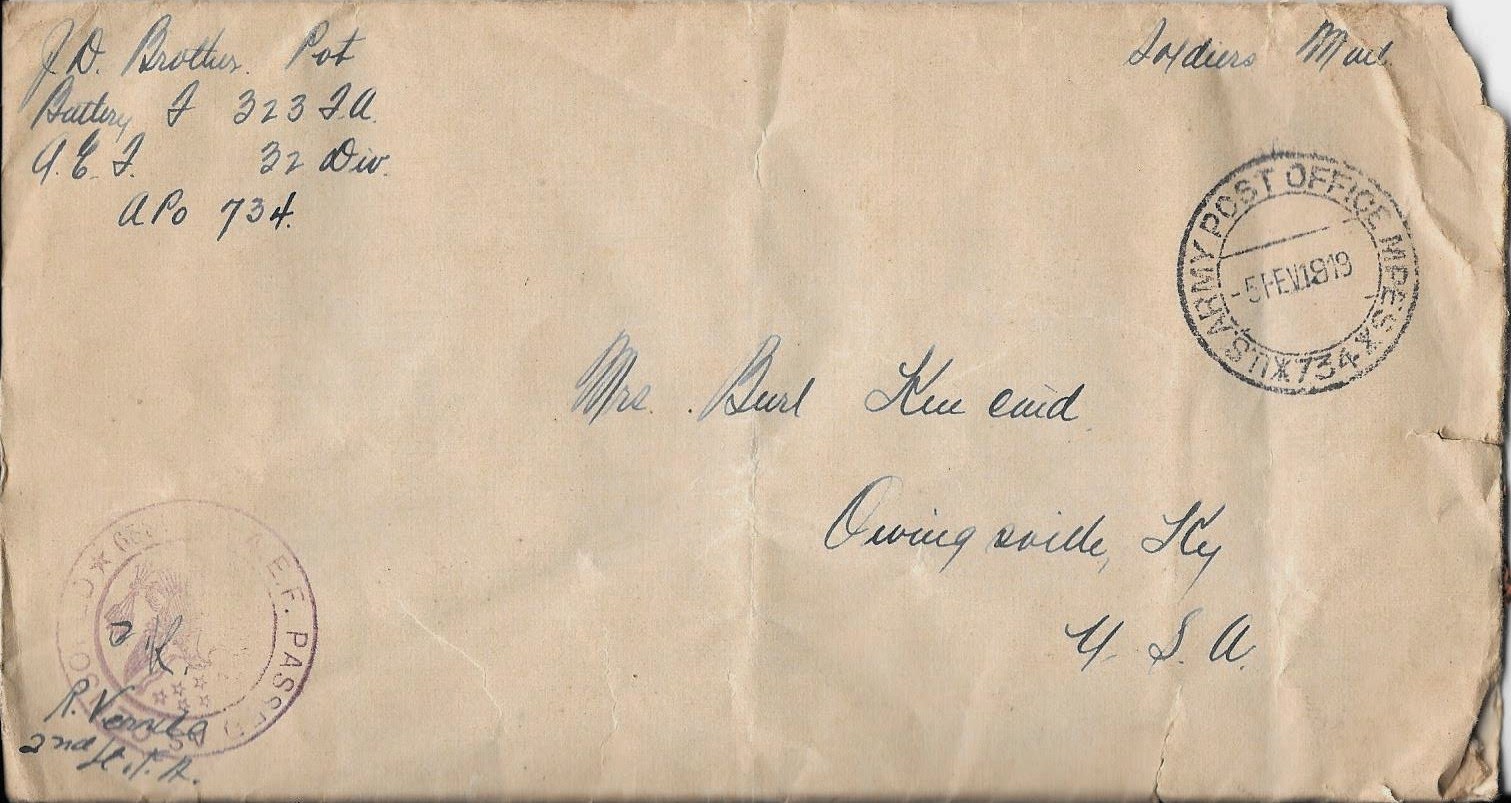 J. D. Brother. Pvt
Battery F 323 F.A.
A. E. F. 32 Div.
APO 734.
Soldiers Mail
U.S. ARMY POST OFFICE MPES
-5 FEV 1919
* 734 *
Mrs. Burl Kincaid
Owingsville, Ky
U. S. A.
A.E.F. PASSED AS
OK.
R.
2nd Lt. F. A.